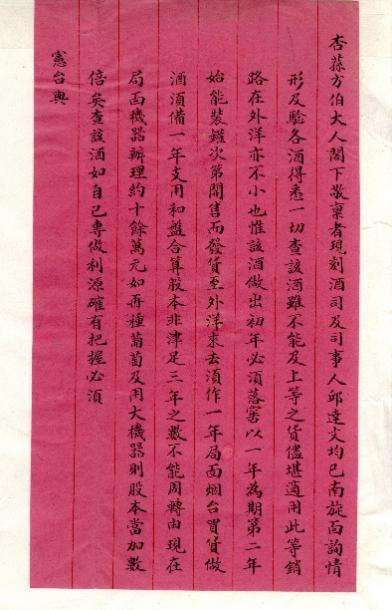 杏蓀方伯大人閣下敬稟者現刻酒司及司事人邱達文均已南旋面詢情
形及驗各酒得悉一切查該酒雖不能及上等之貨儘堪適用此等銷
路在外洋亦不小也惟該酒做出初年必須落窖以一年為期第二年
始能裝罐次第開售而發貨至外洋來去須作一年局面烟台買貨做
酒須備一年支用和盤合算股本非準足三年之數不能周轉由現在
局面機器辦理約十餘萬元如再種葡萄及用大機器則股本當加數
倍矣查該酒如自己專做利源確有把握必須
憲台與